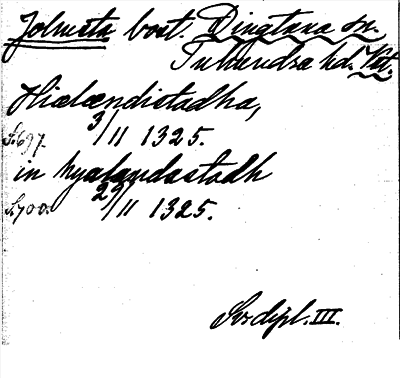 Jolmesta bost. Dingtuna sn.
Tuhundra hd. Vstm.
Hiælændistadha,
S.697. 3/11 1325.
in hyalandastadh
S.700. 29/11 1325.
Sv.dipl. III.